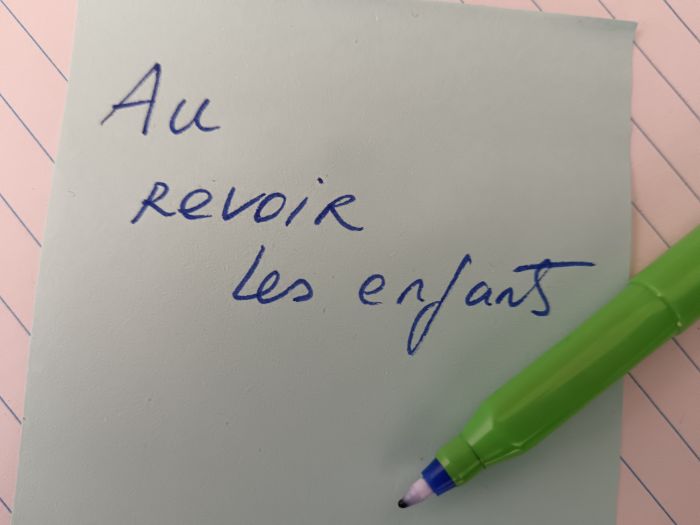 Au
revoir
les enfants